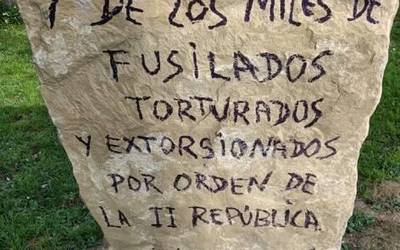 Y DE LOS MILES DE
FUSILADOS
TORTURADOS
Y EXTORSIONADOS
POR ORDEN DE
LA II REPÚBLICA